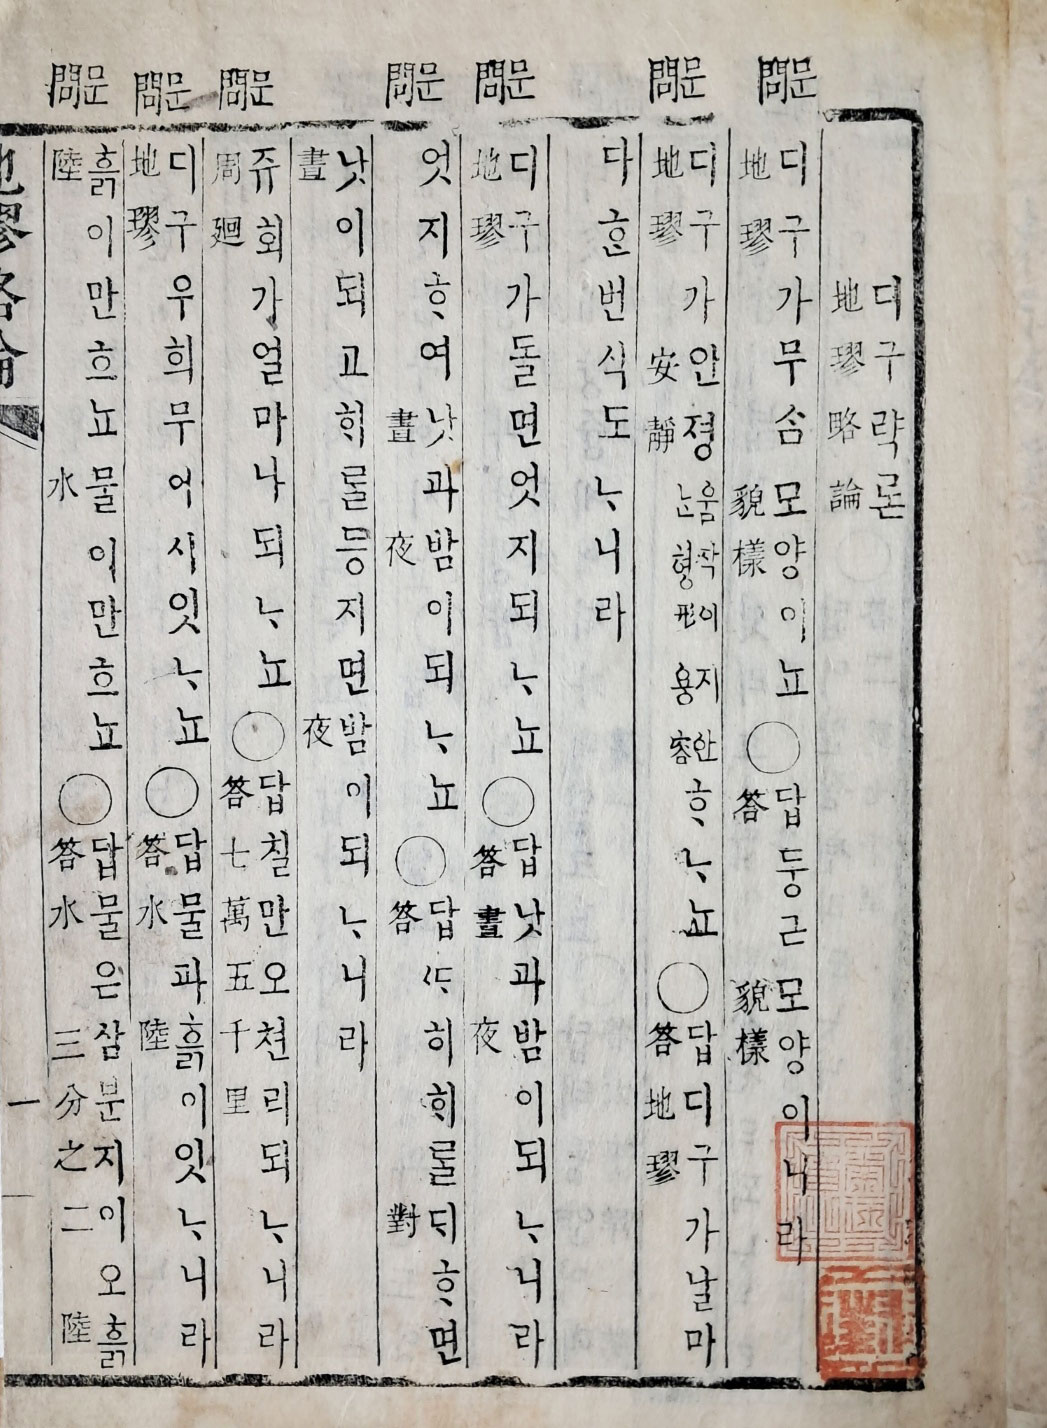 디구략론 地璆略論
문問 디구地璆가무ᄉᆞᆷ모양貌樣이뇨○답答둥근모양貌樣이니라
문問 디구地璆가안졍安靜움작이지안ᄂᆞᆫ형形용容ᄒᆞᄂᆞ뇨○답答디구地璆가날마
다ᄒᆞᆫ번식도ᄂᆞ니라
문問 디구地璆가돌면엇지되ᄂᆞ뇨○답答낫晝과밤夜이되ᄂᆞ니라
문問 엇지ᄒᆞ여낫晝과밤夜이되ᄂᆞ뇨○답答ᄯᆞ히ᄒᆡ를ᄃᆡ對ᄒᆞ면
낫晝이되고ᄒᆡ를등지면밤夜이되ᄂᆞ니라
문問 쥬회周廻가얼마나되ᄂᆞ뇨○답答칠만오쳔리七萬五千里되ᄂᆞ니라
문問 디구地璆우희무어시잇ᄂᆞ뇨○답答물水과흙陸이잇ᄂᆞ니라
문問 흙陸이만흐뇨물水이만흐뇨○답答물水은삼분지이三分之二오흙陸
地璆略論
一